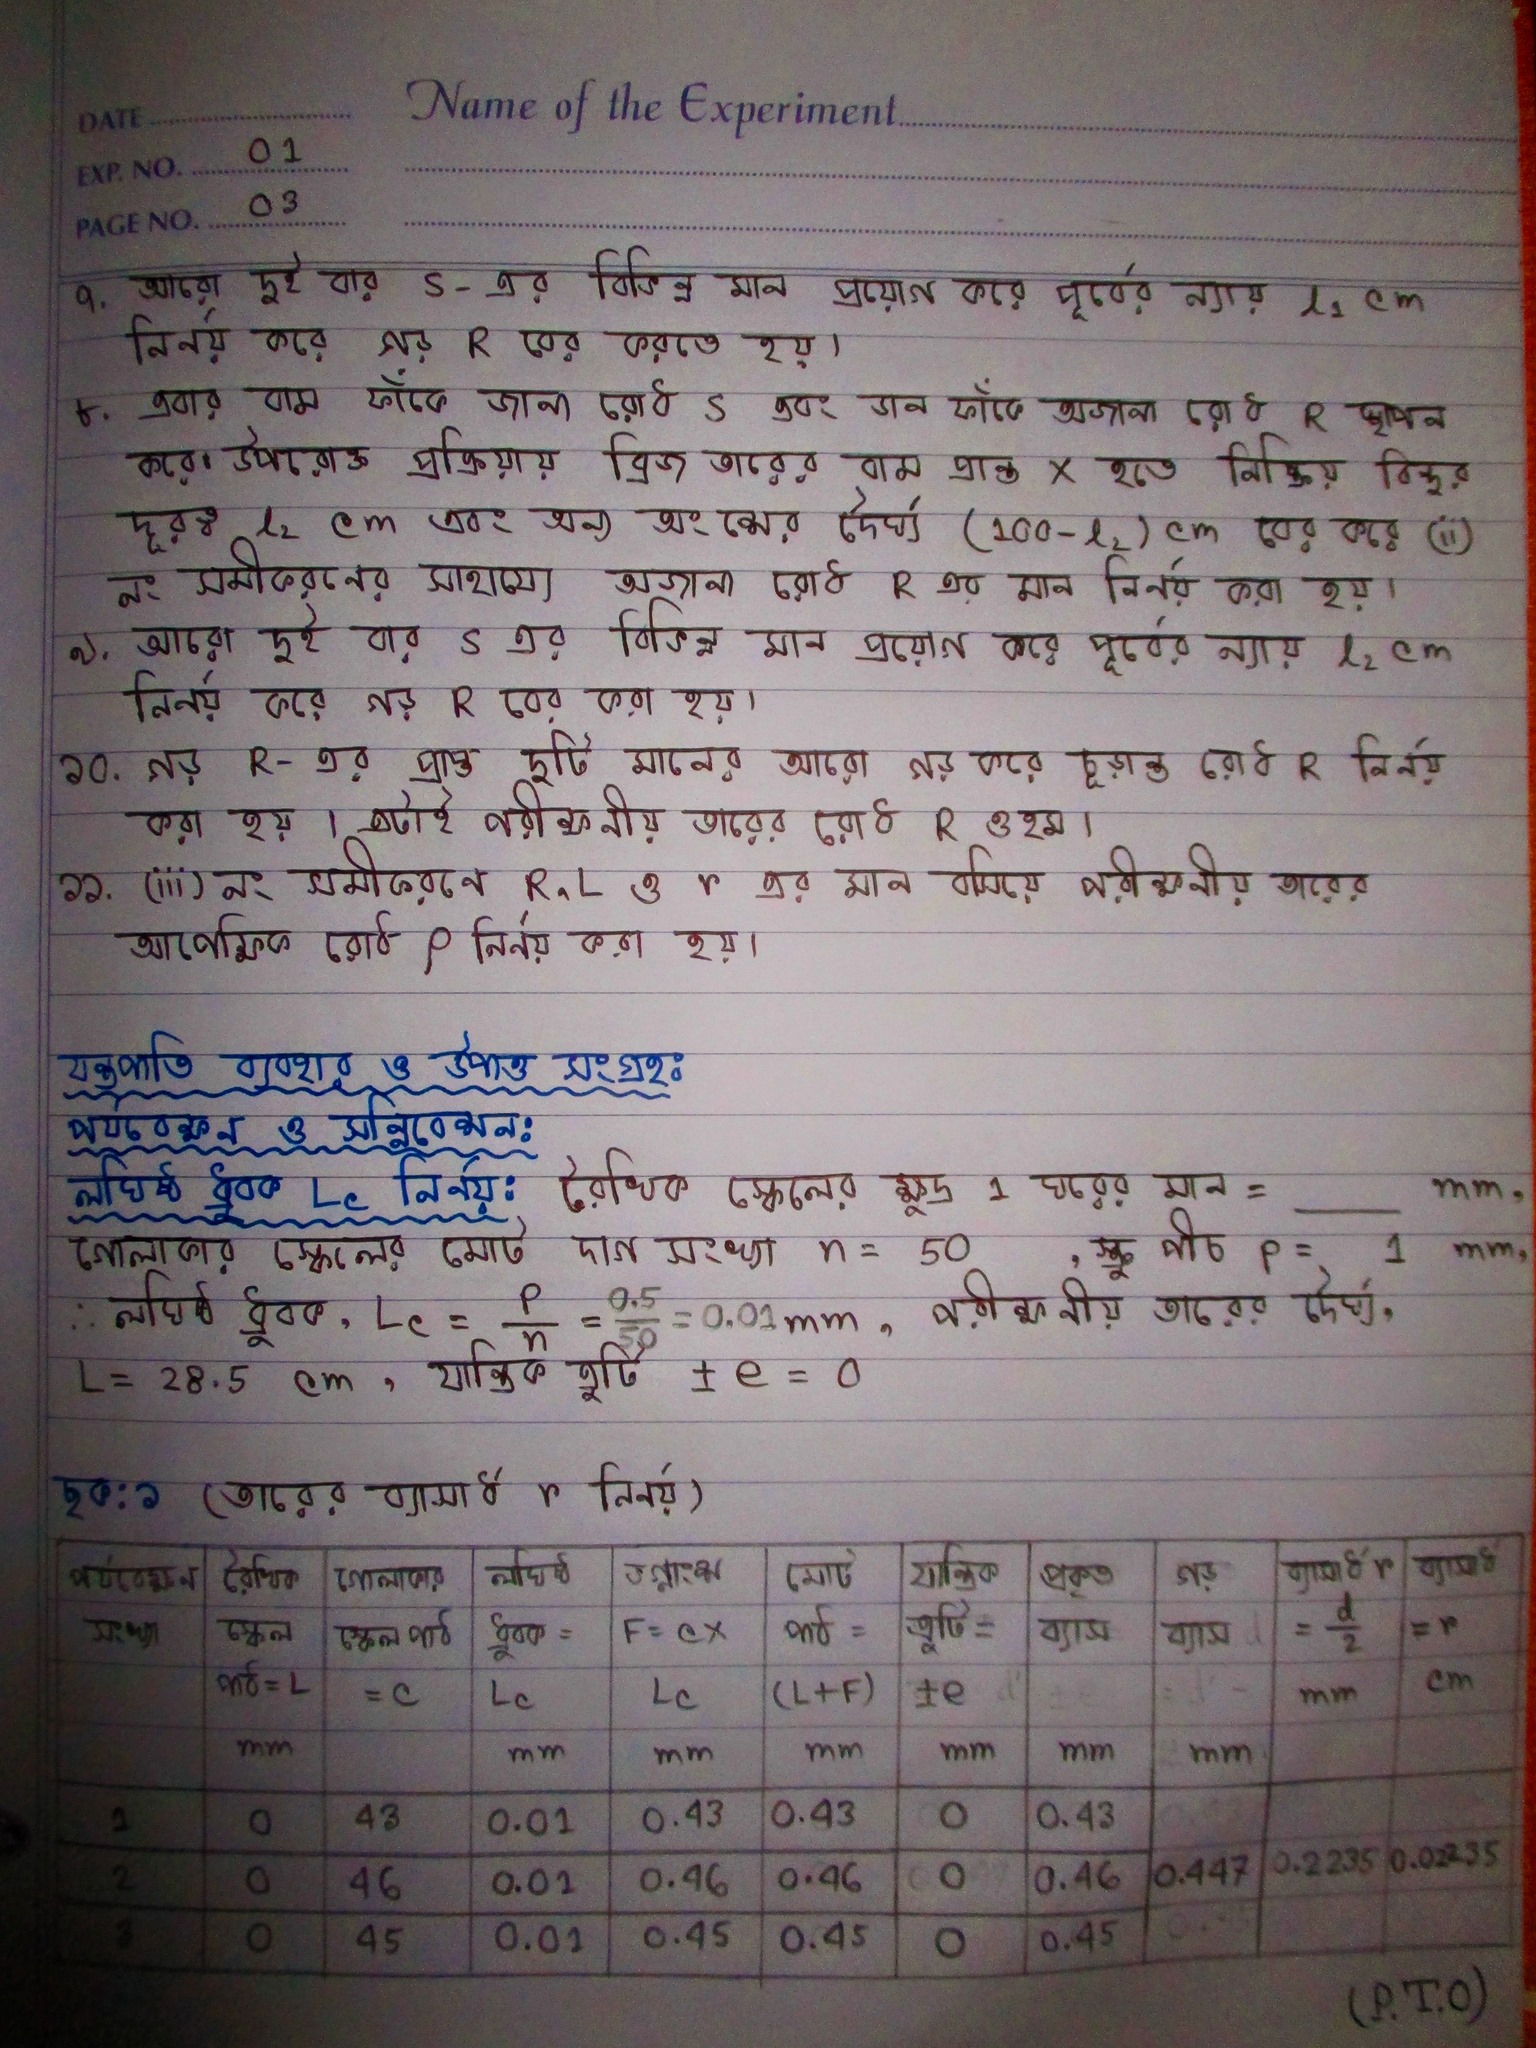 Name of the Experiment
DATE
EXP. NO. 01
PAGE NO. 03
৭. আরো দুই বার S- এর বিভিন্ন মান প্রয়োগ করে পূর্বের ন্যায় l₁ cm
নির্নয় করে গড় R বের করতে হয়।
৮. এবার বাম ফাঁকে জানা রোধ S এবং ডান ফাঁকে অজানা রোধ R স্থাপন
করে। উপরোক্ত প্রক্রিয়ায় ব্রিজ তারের বাম প্রান্ত X হতে নিষ্ক্রিয় বিন্দুর
দূরত্ব l₂ cm এবং অন্য অংশের দৈর্ঘ্য (100-l₂) cm বের করে (ii)
নং সমীকরনের সাহায্যে অজানা রোধ R এর মান নির্নয় করা হয়।
৯. আরো দুই বার S এর বিভিন্ন মান প্রয়োগ করে পূর্বের ন্যায় l₂ cm
নির্নয় করে গড় R বের করা হয়।
১০. গড় R- এর প্রাপ্ত দুটি মানের আরো গড় করে চূড়ান্ত রোধ R নির্নয়
করা হয়। এটাই পরীক্ষনীয় তারের রোধ R ওহম।
১১. (iii) নং সমীকরনে R, L ও r এর মান বসিয়ে পরীক্ষনীয় তারের
আপেক্ষিক রোধ ρ নির্নয় করা হয়।
যন্ত্রপাতি ব্যবহার ও উপাত্ত সংগ্রহঃ
পর্যবেক্ষন ও সন্নিবেশনঃ
লঘিষ্ঠ ধ্রুবক Lc নির্নয়: রৈখিক স্কেলের ক্ষুদ্র 1 ঘরের মান = ____ mm,
গোলাকার স্কেলের মোট দাগ সংখ্যা n = 50 , স্ক্রু পীচ P = 1 mm,
∴ লঘিষ্ঠ ধ্রুবক, Lc = P/n = 0.5/50 = 0.01 mm, পরীক্ষনীয় তারের দৈর্ঘ্য,
L = 28.5 cm, যান্ত্রিক ত্রুটি ± e = 0
ছক: ১ (তারের ব্যাসার্ধ r নির্নয়)
পর্যবেক্ষন রৈখিক গোলাকার লঘিষ্ঠ ভগ্নাংশ মোট যান্ত্রিক প্রকৃত গড় ব্যাসার্ধ r ব্যাসার্ধ
সংখ্যা স্কেল স্কেল পাঠ ধ্রুবক = F = C× পাঠ = ত্রুটি = ব্যাস ব্যাস = d/2 = r
পাঠ = L = C Lc Lc (L+F) ±e mm cm
mm mm mm mm mm mm mm
1 0 43 0.01 0.43 0.43 0 0.43
2 0 46 0.01 0.46 0.46 0 0.46 0.447 0.2235 0.02235
3 0 45 0.01 0.45 0.45 0 0.45
(P.T.O)